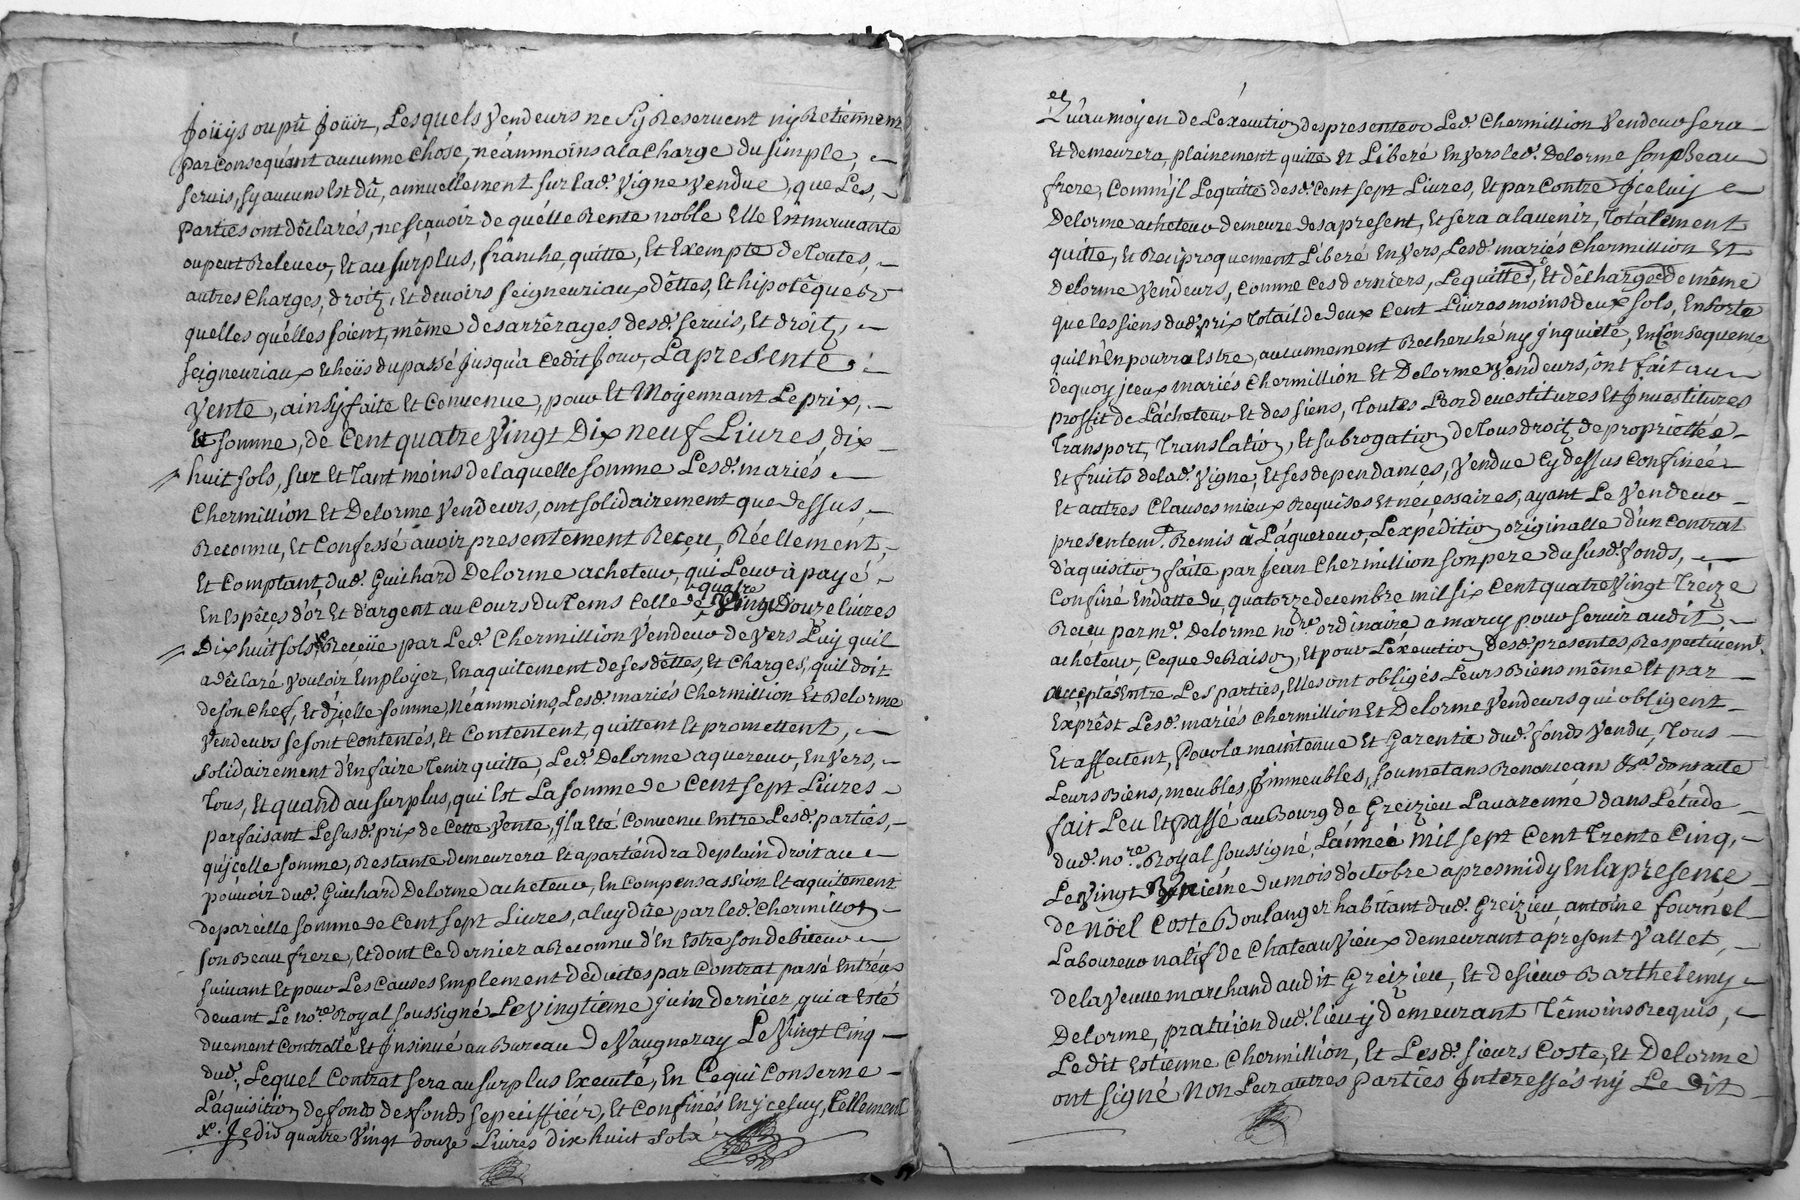 Joüys ou pû Joüir, Lesquels Vendeurs ne Sy Reservent ny Retiennent
par consequánt aucunne chose, néammoins a la Charge du simple,
servis, sy aucuns Est dû, annuellement sur lad. Vigne vendue, que Les,
parties ont dêclarés, ne sçavoir de quélle Rente noble Elle En mouvante
ou peut Relever, Et au surplus, franche, quitte, Et Exempte de Toutes,
autres Charges, droitz, Et devoirs seigneuriaux dêttes, Et hipotêques
quelles quélles soient, même des arrêrages desd. servis, Et droitz,
seigneuriaux Echeüs du passé Jusqu'a cedit Jour, La presente
Vente, ainsy faite Et Convenue, pour Et Moÿennant Le prix,
Et somme, de Cent quatre Vingt Dix neuf Livres dix
huit sols, sur Et Tant moins de laquelle somme Lesd. mariés
Chermillion Et Delorme Vendeurs, ont solidairement que dessus,
Reconnu, Et Confessé avoir presentement Reçeu, Réellement,
Et Comptant, dud. Guichard Delorme acheteur, qui Leur à payé
En Espêçes d'or Et d'argent au Cours du Tems Celle de quatre Vingt Douze livres
Dix huit sols, x Receüe par Led. Chermillion Vendeur de Vers Luy quil
a dêclaré vouloir Employer, En aquitement de ses dêttes, Et Charges, quil doit
de son Chef, Et d'jcelle somme, Néammoins, Lesd. mariés Chermillion Et Delorme
Vendeurs se sont Contentés, Et Contentent, quittent Et promettent,
solidairement d'En faire Tenir quitte, Led. Delorme aquereur, Envers,
Tous, Et quand au surplus, qui Est La somme de Cent sept Livres
parfaisant Le susd. prix de Cette Vente, jl a Eté Convenu Entre Lesd. parties,
qu'jcelle somme, Restante demeurera Et apartiendra de plain droit au
pouvoir dud. Guichard Delorme acheteur, En Compensassion Et aquitement
de pareille somme de Cent sept Livres, a luy dûe par led. Chermillion
son Beau frere, Et dont Ce dernier a Reconnu d'En Estre son debiteur
suivant Et pour Les Causes Emplement dêduites par Contrat passé Entreux
devant Le nore. Royal soussigné Le Vingtieme juin dernier qui a Esté
duement Controllé Et Jnsinué au Bureau De Vaugneray Le Vingt Cinq
dud., Lequel Contrat sera au surplus Executé, En Ce qui Conserne
L'aquisition de fonds des fonds sepeciffiés, Et Confinés En jceluy, Tellement
x. Je dis quatre Vingt douze Livres dix huit sols
Qu'au moyen de L'éxecution des presentes Led. Chermillion Vendeur sera
Et demeurera, plainement quitte Et Liberé Envers led. Delorme son Beau
frere, Comm'jl Le quitte desd. Cent sept Livres, Et par Contre Jceluy
Delorme acheteur demeure des a present, Et sera a l'avenir, Totálement
quitte, Et Reciproquement Liberé Envers, Lesd. mariés Chermillion Et
Delorme Vendeurs, Comme Ces derniers, Le quittent, Et dêchargent de même
que les siens dud. prix Totail de deux Cent Livres moins deux sols, En sorte
quil n'En pourra Estre, aucunnement Recherché ny jnquieté, En Consequence
de quoy jceux mariés Chermillion Et Delorme Vendeurs, ont fait au
proffit de L'acheteur Et des siens, Toutes Les devestitures Et Jnvestitures
Transport, Translation, Et subrogation de Tous droitz de proprietté
Et fruits de lad. Vigne, Et ses dependances, Vendue Cy dessus Confinée
Et autres Clauses mieux Requises Et nécessaires, ayant Le Vendeur
presentemt. Remis à L'aquereur, L'expédition originalle d'un Contrat
d'aquisition faite par Jean Chermillion son pere du susd. fonds,
Confiné En datte du quatorze decembre mil six Cent quatre Vingt Tréize
Reçeu par me. Delorme nore. ordinaire a marcy pour servir audit
acheteur, Ce que de Raison, Et pour L'éxecution desd. presentes Respectivemt.
acceptés Entre Les parties, Elles ont obligés Leurs Biens même Et par
Exprêst Lesd. mariés Chermillion Et Delorme Vendeurs qui obligent
Et affectent, Pour la maintenue Et Garentie dud. fonds Vendu, Tous
Leurs Biens, meubles, Jmmeubles, soumetans Renonceans &a. dont acte
fait Leu Et passé au Bourg de Greizieu Lavarenne dans L'étude
dud. nore. Royal soussigné, L'année mil sept Cent Trente Cinq,
Le Vingt du mois d'octobre apres midy En la presence
de nöel Coste Boulanger habitant dud. Greizieu, antoine fournel
Laboureur natif de Chateau Vieux demeurant a present Vallet,
de la Veuve marchand audit Greizieu, Et de sieur Barthelemy
Delorme, praticien dud. lieu y demeurant Têmoins Requis,
Ledit Estienne Chermillion, Et Lesd. sieurs Coste, Et Delorme
ont signé Non Les autres parties Jnteressés ny Le dit